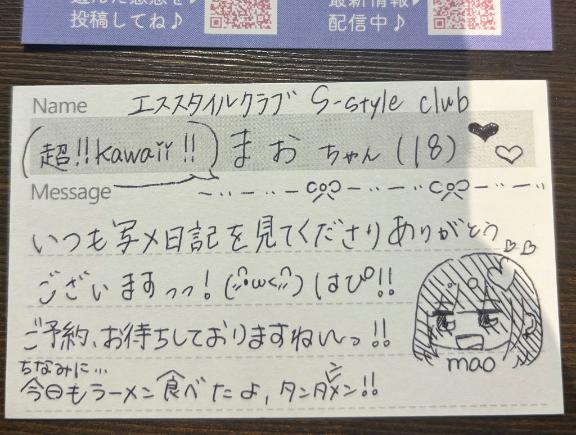 選んだ感想を♪
投稿してね♪
最新情報♪
配信中♪
Name エススタイルクラブ S-style club
(超!!kawaii!!) まお ちゃん(18)
Message
いつも写メ日記を見てくださりありがとう
ございますっっ!(;^ω^) はぴ!!
ご予約、お待ちしておりますねいっ!!
mao
ちなみに…
今日もラーメン食べたよ,タンタンメン!!